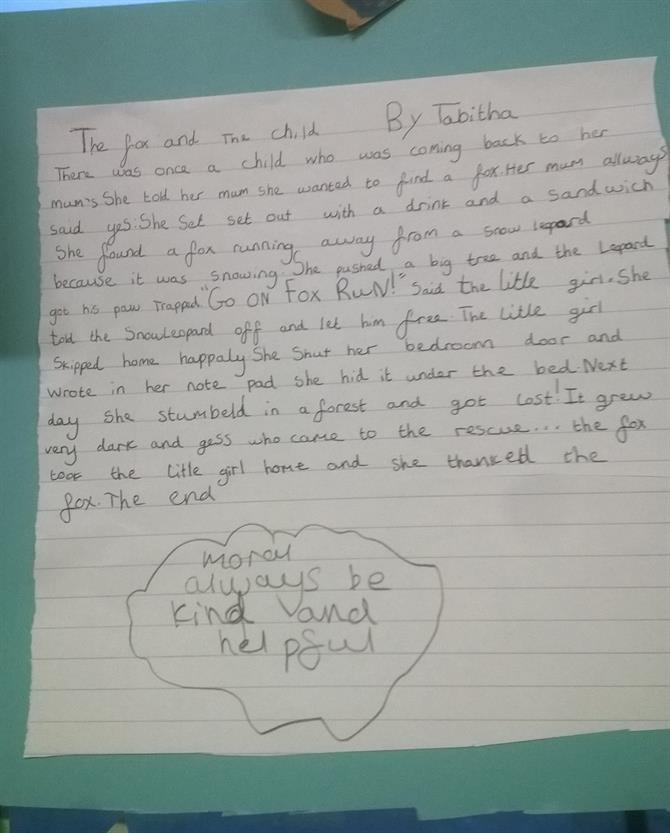 The fox and The child By Tabitha
There was once a child who was coming back to her
mum's She told her mum she wanted to find a fox. Her mum allways
said yes. She Set set out with a drink and a sandwich
She found a fox running away from a snow lepard
because it was snowing. She pushed a big tree and the Lepard
got his paw Trapped "GO ON FOX RUN!" Said the little girl. She
told the Snowleopard off and let him free. The little girl
Skipped home happaly She Shut her bedroom door and
wrote in her note pad she hid it under the bed. Next
day She stumbeld in a forest and got lost! It grew
very dark and gess who came to the rescue... the fox
took the little girl home and she thanked the
fox. The end
moral
always be
kind and
helpful